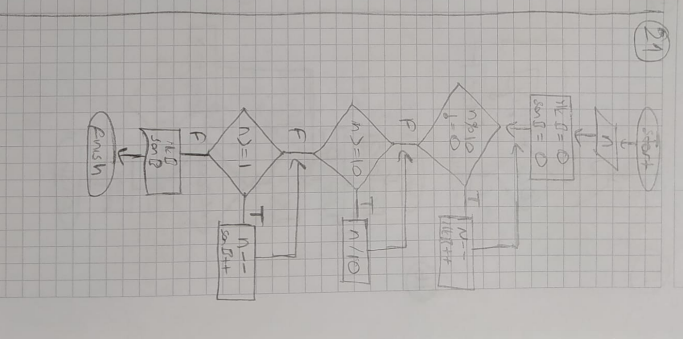 21
Start
n
ilk[] = 0
son[] = 0
n%10
!= 0
T
n--
ilk[]++
F
n>=10
T
n/10
F
n>=1
T
n--
son[]++
F
ilk[]
son[]
finish